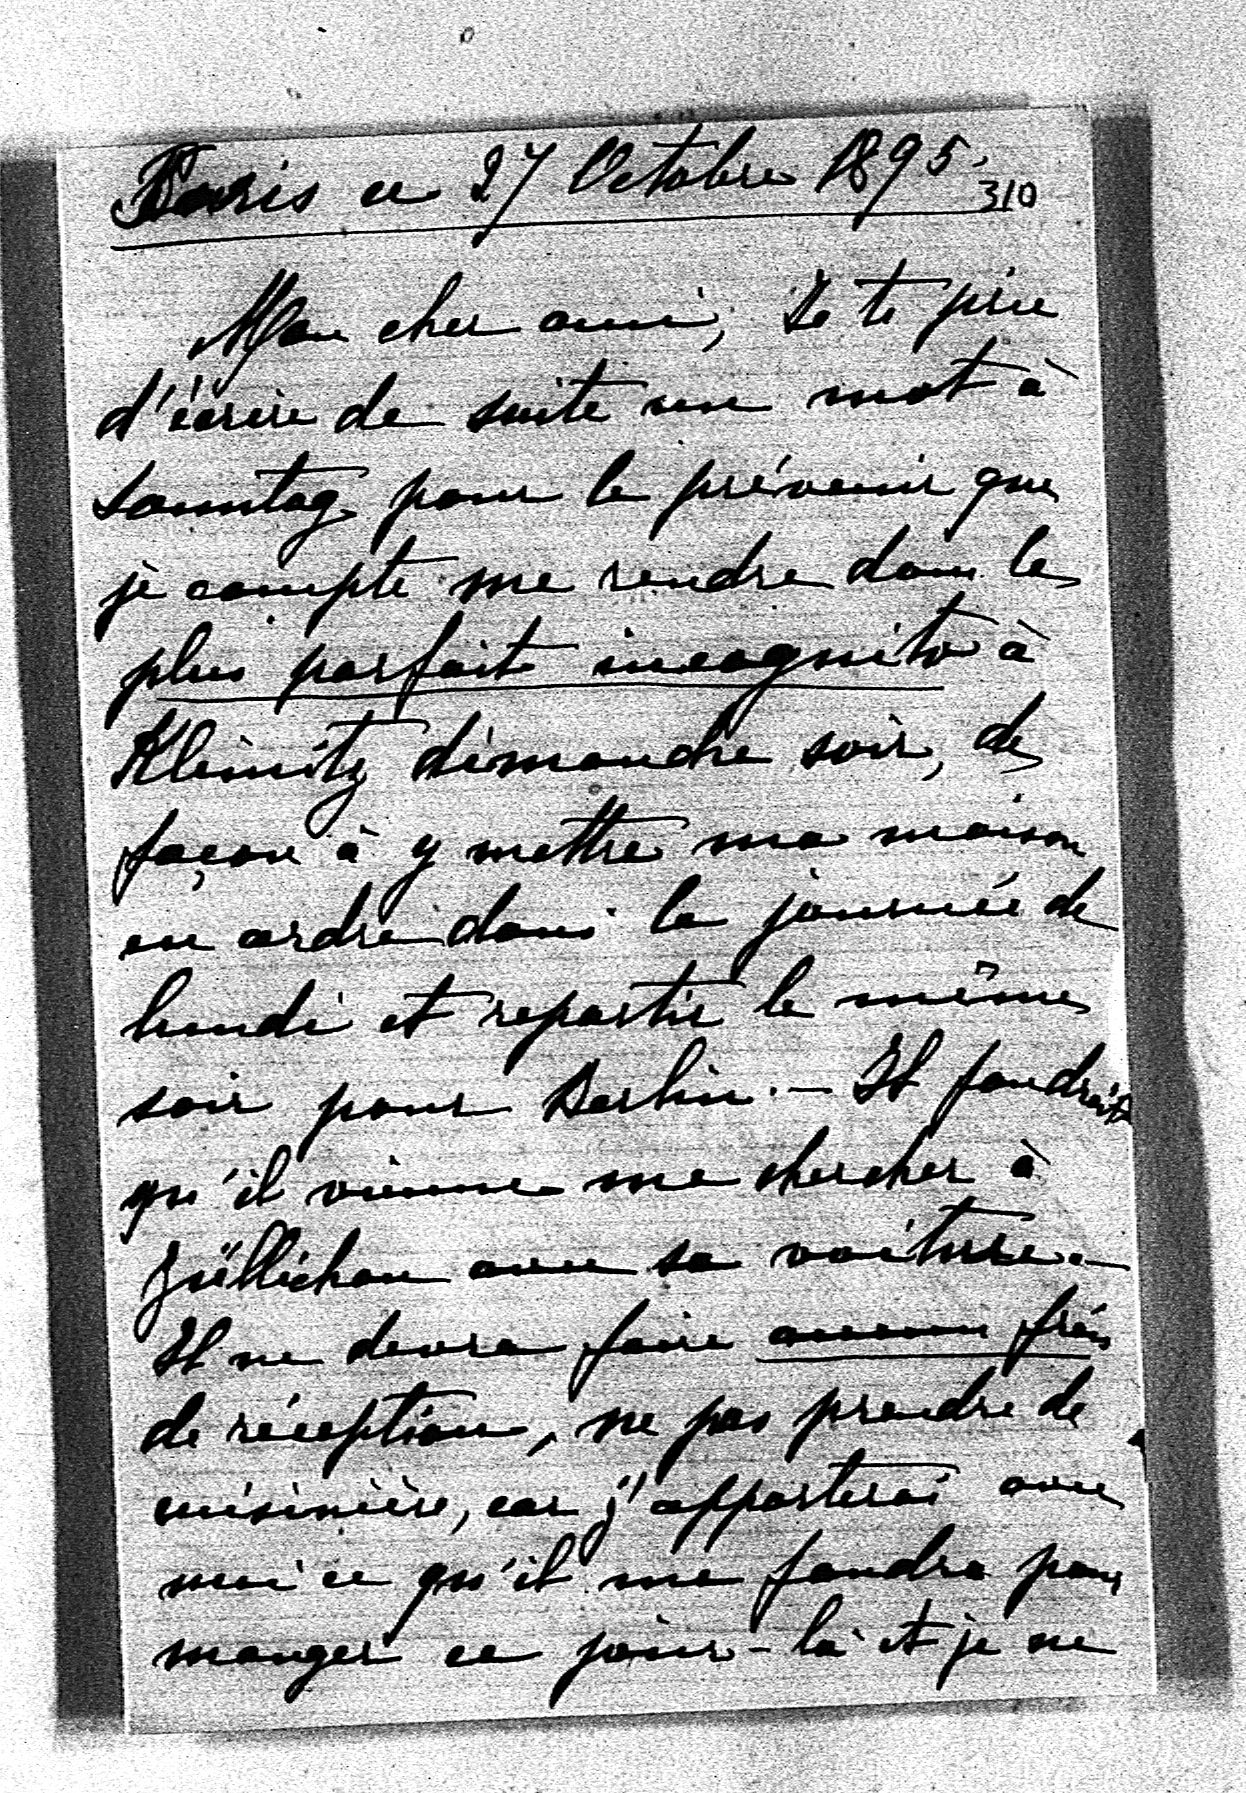 Paris ce 27 Octobre 1895.
310
Mon cher ami, Je te prie
d'écrire de suite un mot à
Sonntag pour le prévenir que
je compte me rendre dans le
plus parfait incognito à
Kleinitz dimanche soir, de
façon à y mettre ma maison
en ordre dans la journée de
lundi et repartir le même
soir pour Berlin. — Il faudrait
qu'il vienne me chercher à
Züllichau avec sa voiture. —
Il ne devra faire aucun frais
de réception, ne pas prendre de
cuisinière, car j'apporterai avec
moi ce qu'il me faudra pour
manger ce jour-là et je ne